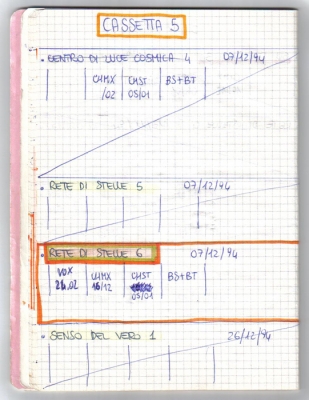 CASSETTA 5
CENTRO DI LUCE COSMICA 4 07/12/94
CHMX CHST BS+BT
/02 05/01
RETE DI STELLE 5 07/12/94
RETE DI STELLE 6 07/12/94
VOX CHMX CHST BS+BT
26.02 16/12
05/01
SENSO DEL VERO 1 26/12/94